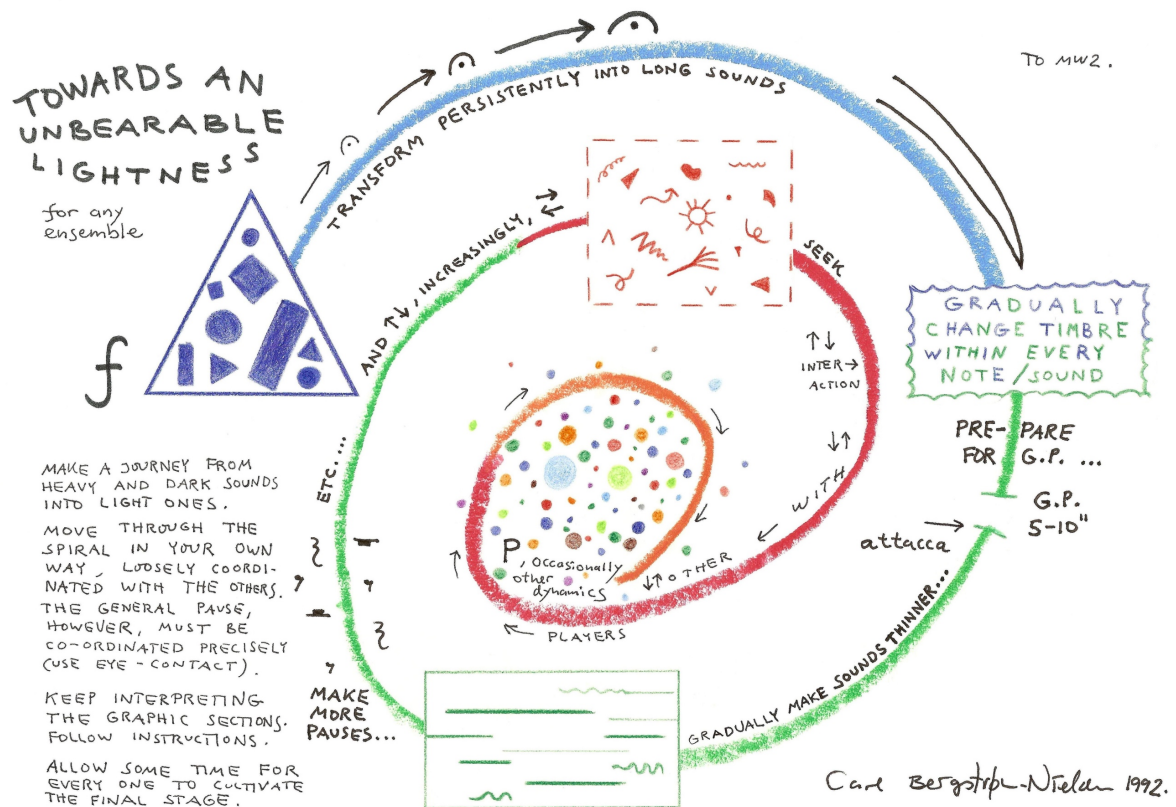 TOWARDS AN
UNBEARABLE
LIGHTNESS
for any
ensemble
TO MW2.
f
TRANSFORM PERSISTENTLY INTO LONG SOUNDS
GRADUALLY
CHANGE TIMBRE
WITHIN EVERY
NOTE/SOUND
PRE-PARE
FOR G.P. ...
G.P.
5-10"
attacca
GRADUALLY MAKE SOUNDS THINNER...
MAKE
MORE
PAUSES...
ETC....
AND ↑↓, INCREASINGLY,
SEEK
INTER
ACTION
WITH
OTHER
PLAYERS
P, occasionally
other
dynamics
MAKE A JOURNEY FROM
HEAVY AND DARK SOUNDS
INTO LIGHT ONES.
MOVE THROUGH THE
SPIRAL IN YOUR OWN
WAY, LOOSELY COORDI-
NATED WITH THE OTHERS.
THE GENERAL PAUSE,
HOWEVER, MUST BE
CO-ORDINATED PRECISELY
(USE EYE-CONTACT).
KEEP INTERPRETING
THE GRAPHIC SECTIONS.
FOLLOW INSTRUCTIONS.
ALLOW SOME TIME FOR
EVERY ONE TO CULTIVATE
THE FINAL STAGE.
Carl Bergstrøm-Nielsen 1992.